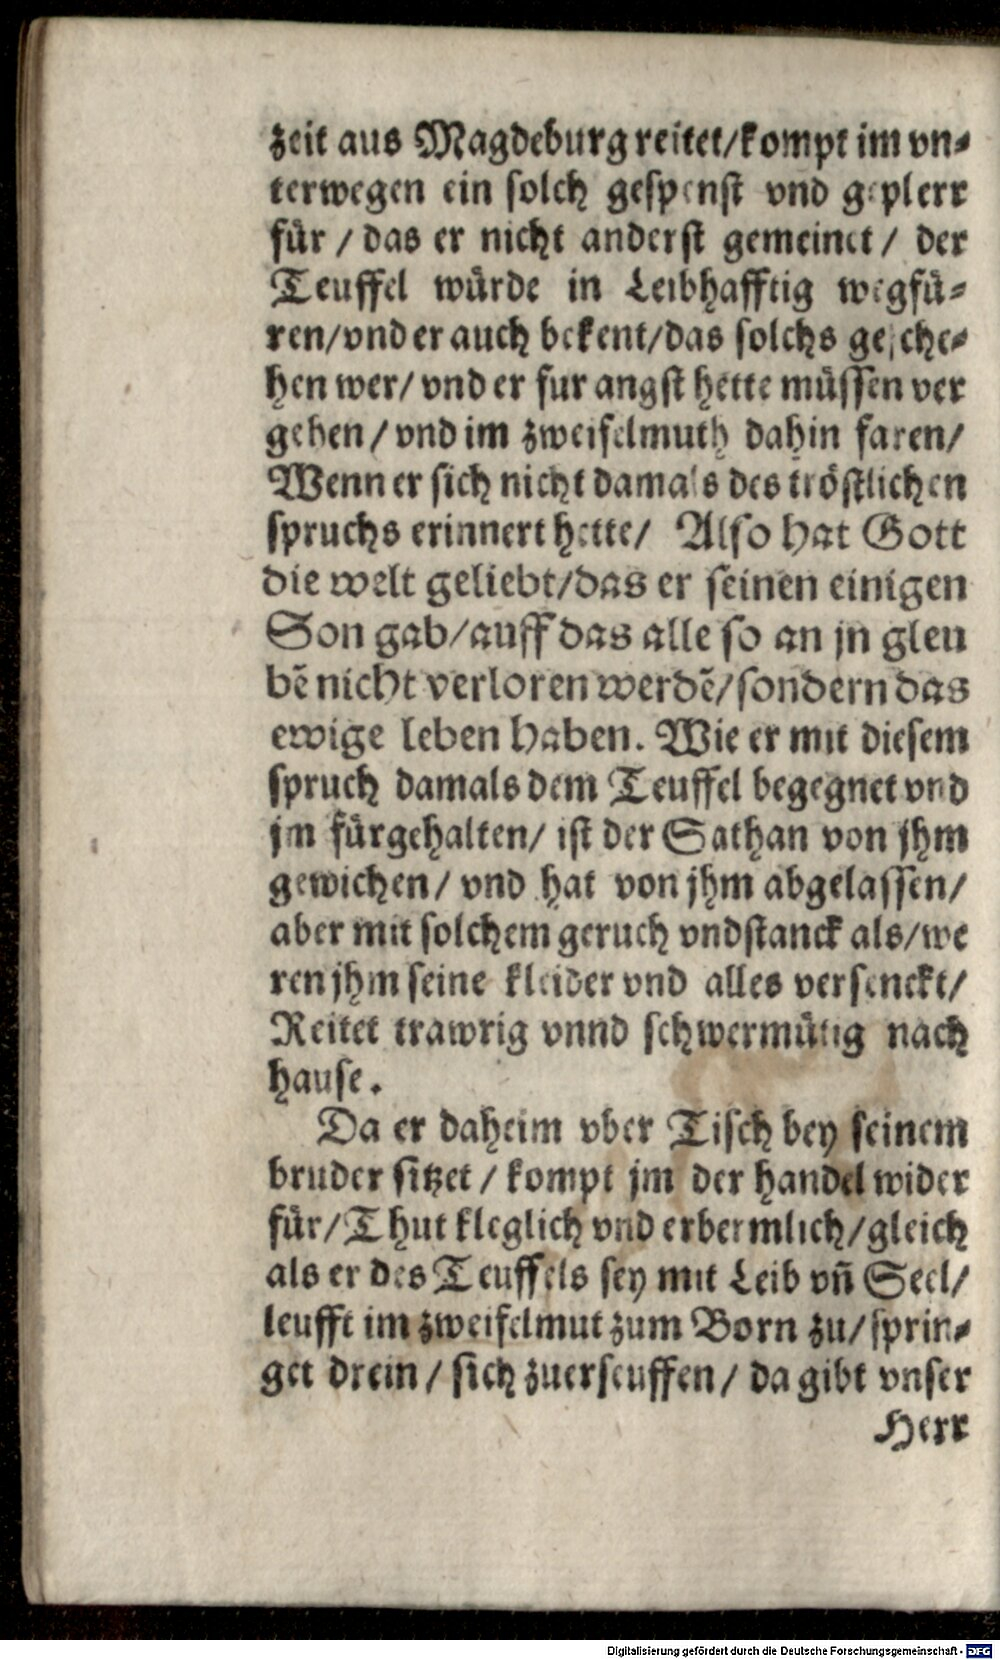 zeit aus Magdeburg reitet/kompt im vn⸗
terwegen ein solch gespenst vnd geplerr
für / das er nicht anderst gemeinet / der
Teuffel würde in Leibhafftig wegfü⸗
ren/vnd er auch bekent/das solchs gesche⸗
hen wer/ vnd er fur angst hette müssen ver
gehen / vnd im zweifelmuth dahin faren/
Wenn er sich nicht damals des tröstlichen
spruchs erinnert hette/ Also hat Gott
die welt geliebt/das er seinen einigen
Son gab/auff das alle so an jn gleu
bẽ nicht verloren werdẽ/sondern das
ewige leben haben. Wie er mit diesem
spruch damals dem Teuffel begegnet vnd
jm fürgehalten/ ist der Sathan von jhm
gewichen/ vnd hat von jhm abgelassen/
aber mit solchem geruch vnd stanck als/we
ren jhm seine kleider vnd alles versenckt/
Reitet trawrig vnnd schwermütig nach
hause.
Da er daheim vber Tisch bey seinem
bruder sitzet / kompt jm der handel wider
für/Thut kleglich vnd erbermlich/gleich
als er des Teuffels sey mit Leib vñ Seel/
leufft im zweifelmut zum Born zu/sprin⸗
get drein / sich zuerseuffen / da gibt vnser
Herr
Digitalisierung gefördert durch die Deutsche Forschungsgemeinschaft - DFG